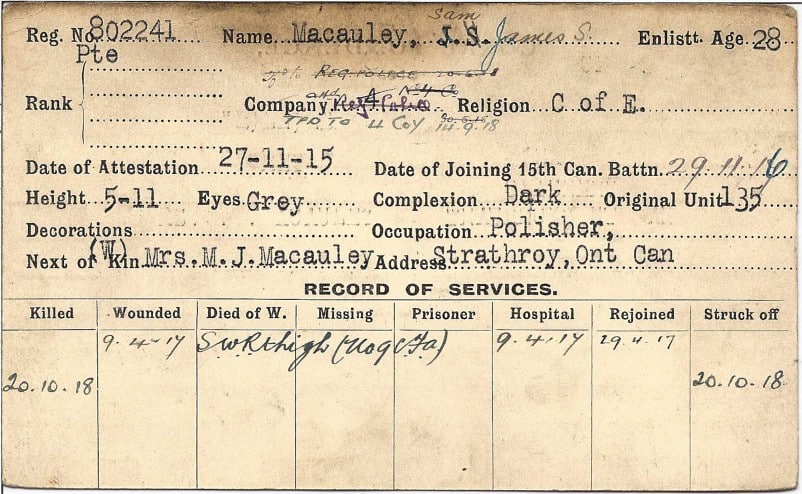 Sam
Reg. No. 802241 Name Macauley, J.S. James S. Enlistt. Age 28
Pte
REG. POLICE
and No 4 Co
Rank Company Reg. Police Religion C of E.
TPD TO 4 COY 14.9.18
Date of Attestation 27-11-15 Date of Joining 15th Can. Battn. 29.11.16
Height 5-11 Eyes Grey Complexion Dark Original Unit 135
Decorations Occupation Polisher,
Next of Kin (W) Mrs. M. J. Macauley Address Strathroy, Ont Can
RECORD OF SERVICES.
Killed Wounded Died of W. Missing Prisoner Hospital Rejoined Struck off
9.4.17 SWR thigh (No 9 CFa) 9.4.17 29.4.17
20.10.18 20.10.18